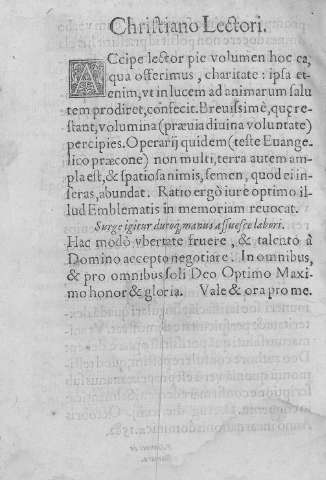 Christiano Lectori.
ACcipe lector pie volumen hoc ea,
qua offerimus, charitate: ipsa et-
enim, vt in lucem ad animarum salu
tem prodiret, confecit. Breuissimè, quę re-
stant, volumina (præuia diuina voluntate)
percipies. Operarij quidem (teste Euange-
lico præcone) non multi, terra autem am-
pla est, & spatiosa nimis, semen, quod ei in-
seras, abundat. Ratio ergò iure optimo il-
lud Emblematis in memoriam reuocat.
Surge igitur duroq; manus assuesce labori.
Hac modò vbertate fruere, & talento à
Domino accepto negotiare. In omnibus,
& pro omnibus soli Deo Optimo Maxi-
mo honor & gloria. Vale & ora pro me.